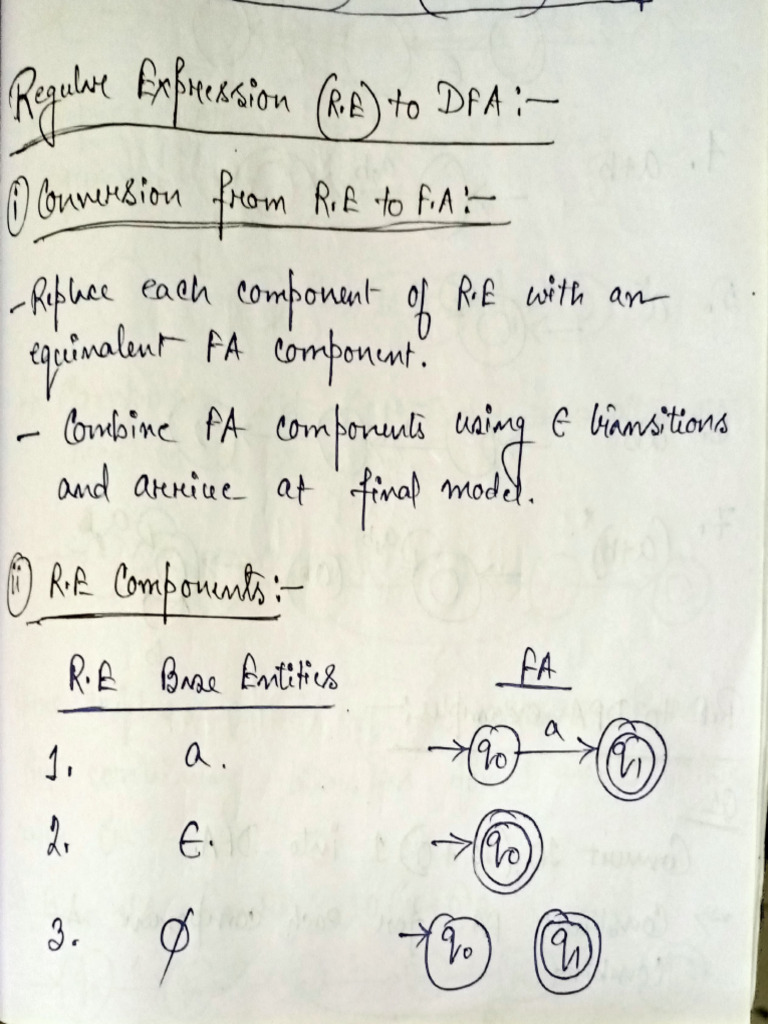 Regulre Expression (R.E) to DFA :-
(i) Conversion from R.E to F.A :-
- Replace each component of R.E with an
equivalent FA component.
- Combine FA components using ∈ transitions
and arrive at final model.
(ii) R.E Components :-
R.E Base Entities FA
1. a. q0 a q1
2. ∈. q0
3. ϕ q0 q1